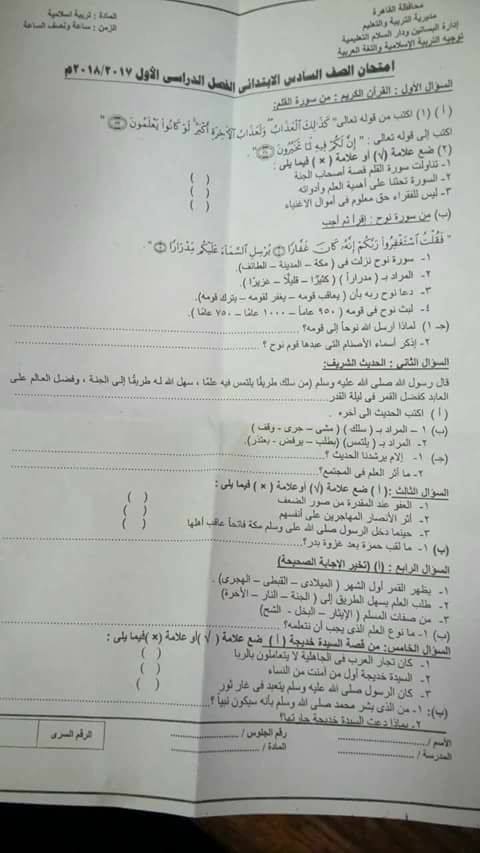 محافظة القاهرة
مديرية التربية والتعليم
إدارة البساتين ودار السلام التعليمية
توجيه التربية الإسلامية واللغة العربية
المادة : تربية اسلامية
الزمن : ساعة ونصف الساعة
امتحان الصف السادس الابتدائى الفصل الدراسى الأول ٢٠١٨/٢٠١٧م
السؤال الأول : القرآن الكريم : من سورة القلم:
( أ ) (١) اكتب من قوله تعالى" كَذَٰلِكَ الْعَذَابُ ۖ وَلَعَذَابُ الْآخِرَةِ أَكْبَرُ ۚ لَوْ كَانُوا يَعْلَمُونَ
اكتب إلى قوله تعالى : " إِنَّ لَكُمْ فِيهِ لَمَا تَخَيَّرُونَ " .
(٢) ضع علامة (√) أو علامة ( × ) فيما يلى :
١- تناولت سورة القلم قصة أصحاب الجنة ( )
٢- السورة تحثنا على أهمية العلم وأدواته ( )
٣- ليس للفقراء حق معلوم فى أموال الاغنياء ( )
(ب) من سورة نوح : إقرأ ثم أجب
" فَقُلْتُ اسْتَغْفِرُوا رَبَّكُمْ إِنَّهُ كَانَ غَفَّارًا يُرْسِلِ السَّمَاءَ عَلَيْكُم مِّدْرَارًا " .
١- سورة نوح نزلت في ( مكة – المدينة – الطائف).
٢- المراد بـ ( مدراراً ) ( كثيرًا – قليلًا – غزيرًا ).
٣- دعا نوح ربه بأن (يعاقب قومه – يغفر لقومه – يترك قومه).
٤- لبث نوح فى قومه ( ٩٥٠ عاماً – ١٠٠٠ عامًا – ٧٥٠ عامًا ).
(جـ) ١- لماذا ارسل الله نوحاً إلى قومه؟
٢- إذكر أسماء الأصنام التى عبدها قوم نوح ؟
السؤال الثانى : الحديث الشريف:
قال رسول الله صلى الله عليه وسلم (من سلك طريقًا يلتمس فيه علمًا ، سهل الله له طريقًا إلى الجنة ، وفضل العالم على
العابد كفضل القمر فى ليلة القدر
( أ ) اكتب الحديث الى أخره .
(ب) ١ – المراد بـ ( سلك ) ( مشى – جرى - وقف )
٢- المراد بـ (يلتمس) (يطلب – يرفض - يعتذر).
(جـ) ١- إلام يرشدنا الحديث ؟
٢- ما أثر العلم فى المجتمع؟
السؤال الثالث : ( أ ) ضع علامة (√) أوعلامة ( × ) فيما يلى :
١- العفو عند المقدرة من صور الضعف ( )
٢- أثر الأنصار المهاجرين على أنفسهم ( )
٣- حينما دخل الرسول صلى الله على وسلم مكة فاتحاً عاقب أهلها ( )
(ب) ١- ما لقب حمزة بعد غزوة بدر؟
السؤال الرابع : (أ) (تخير الإجابة الصحيحة)
١- يظهر القمر أول الشهر ( الميلادى – القبطى – الهجرى).
٢- طلب العلم يسهل الطريق إلى ( الجنة – النار – الأخرة)
٣- من صفات المسلم ( الإيثار – البخل - الشح)
(ب) ١- ما نوع العلم الذى يجب أن نتعلمه؟
السؤال الخامس: من قصة السيدة خديجة ( أ ) ضع علامة ( √ )أو علامة (×)فيما يلى :
١- كان تجار العرب فى الجاهلية لا يتعاملون بالربا ( )
٢- السيدة خديجة أول من أمنت من النساء ( )
٣- كان الرسول صلى الله عليه وسلم يتعبد فى غار ثور ( )
(ب): ١- من الذى بشر محمد صلى الله وسلم بأنه سيكون نبياً ؟
٢- بماذا دعت السيدة خديجة جارتها؟
الأسم /
رقم الجلوس /
الرقم السرى
المدرسة /
المادة /